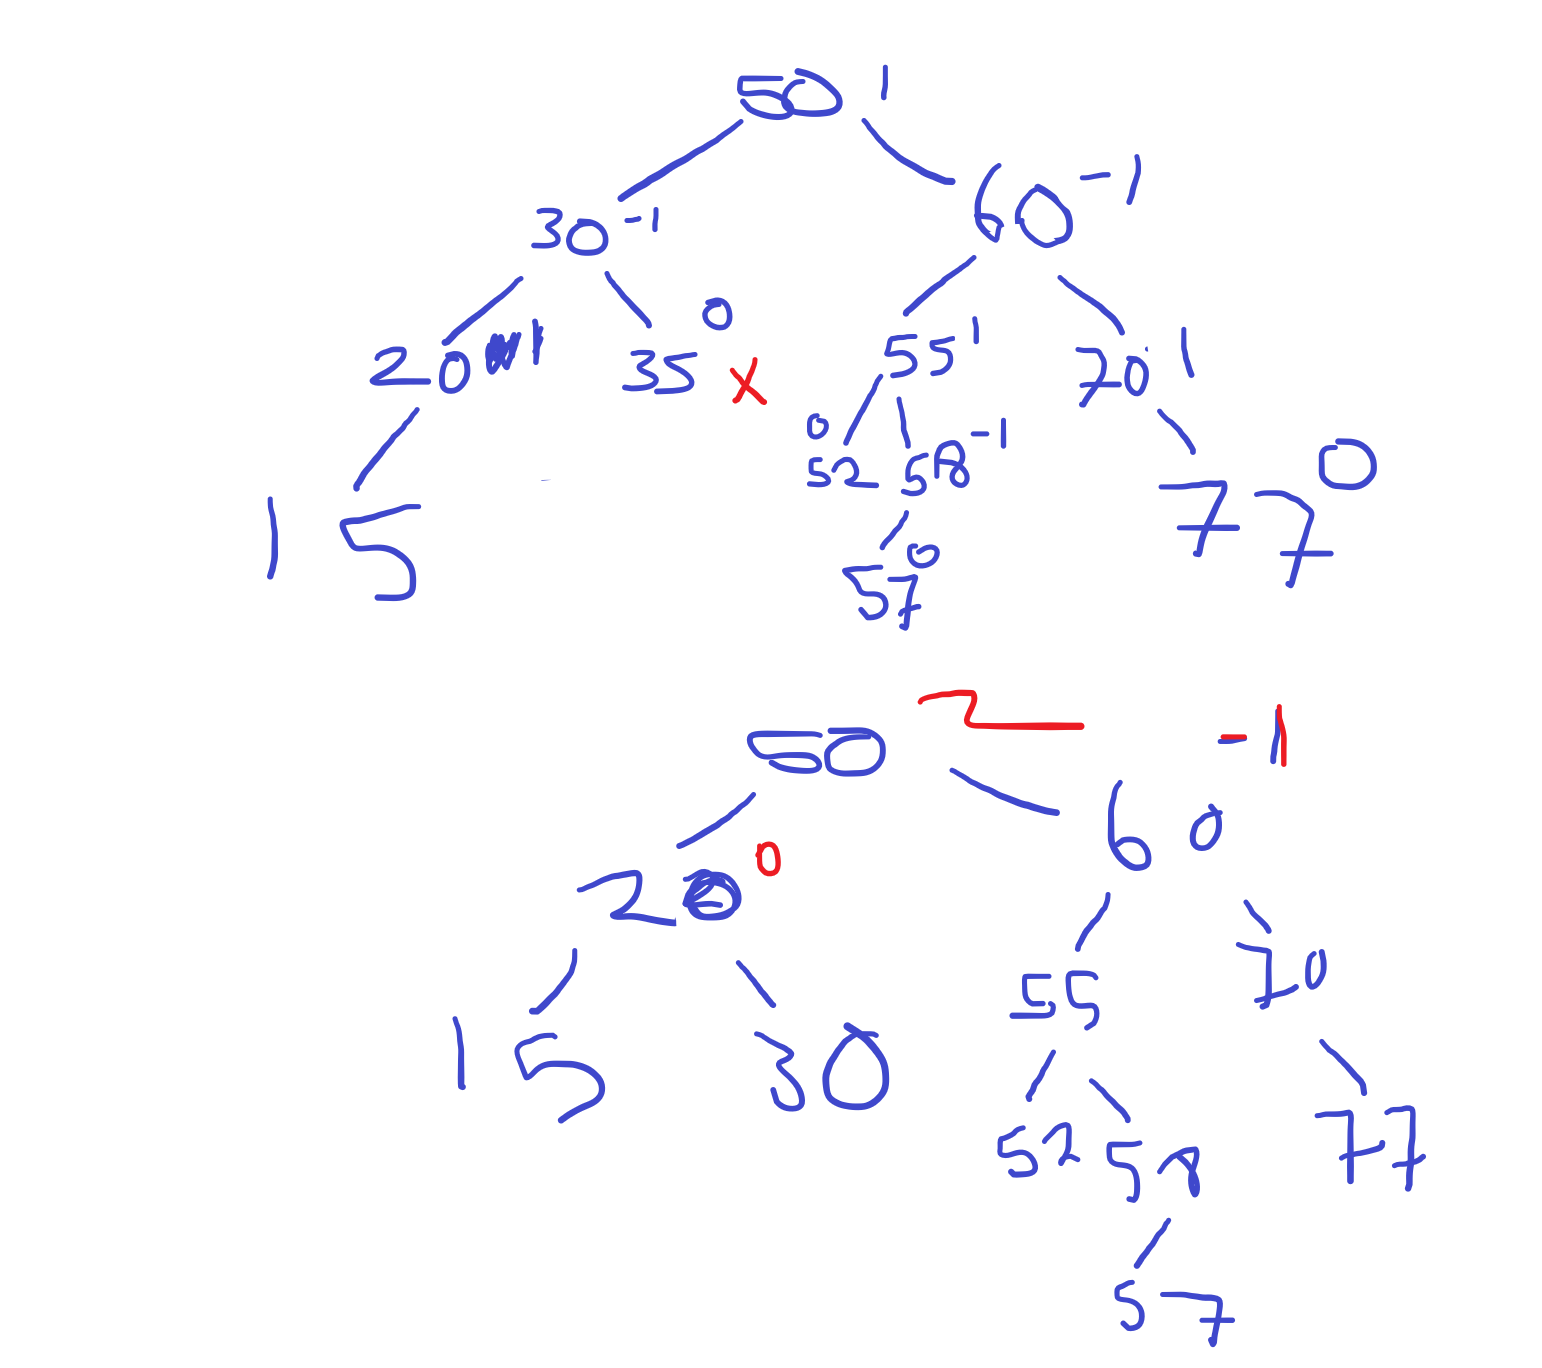 50 1
30 -1 60 -1
20 1 35 0 x 55 1 70 1
15 0 52 58 -1 77 0
57 0
50 2 -1
20 0 60
15 30 55 70
52 58 77
57